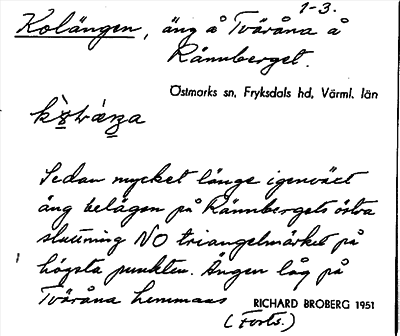 1-3.
Kolängen, äng å Tväråna å
Rännberget.
Östmarks sn, Fryksdals hd, Värml. län
Sedan mycket länge igenväxt
äng belägen på Rännbergets östra
sluttning NO triangelmärket på
högsta punkten. Ängen låg på
Tväråna hemmans
RICHARD BROBERG 1951
(Forts.)